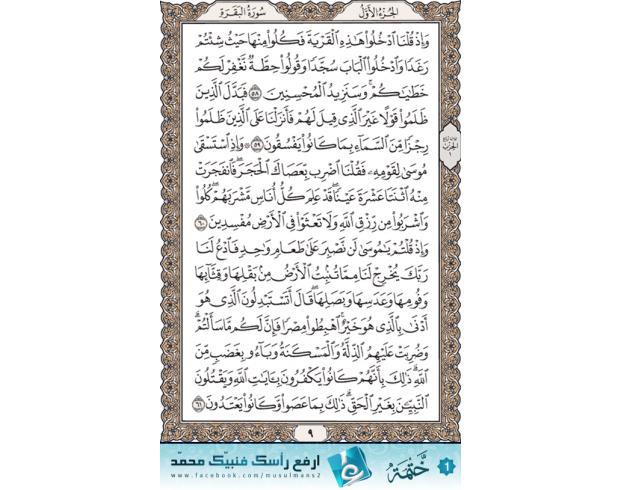 الجزء الأول
سورة البقرة
وَإِذْ قُلْنَا ٱدْخُلُوا۟ هَٰذِهِ ٱلْقَرْيَةَ فَكُلُوا۟ مِنْهَا حَيْثُ شِئْتُمْ
رَغَدًا وَٱدْخُلُوا۟ ٱلْبَابَ سُجَّدًا وَقُولُوا۟ حِطَّةٌ نَّغْفِرْ لَكُمْ
خَطَٰيَٰكُمْ ۚ وَسَنَزِيدُ ٱلْمُحْسِنِينَ ٥٨ فَبَدَّلَ ٱلَّذِينَ
ظَلَمُوا۟ قَوْلًا غَيْرَ ٱلَّذِى قِيلَ لَهُمْ فَأَنزَلْنَا عَلَى ٱلَّذِينَ ظَلَمُوا۟
رِجْزًا مِّنَ ٱلسَّمَآءِ بِمَا كَانُوا۟ يَفْسُقُونَ ٥٩ ۞ وَإِذِ ٱسْتَسْقَىٰ
مُوسَىٰ لِقَوْمِهِۦ فَقُلْنَا ٱضْرِب بِّعَصَاكَ ٱلْحَجَرَ ۖ فَٱنفَجَرَتْ
مِنْهُ ٱثْنَتَا عَشْرَةَ عَيْنًا ۖ قَدْ عَلِمَ كُلُّ أُنَاسٍ مَّشْرَبَهُمْ ۖ كُلُوا۟
وَٱشْرَبُوا۟ مِن رِّزْقِ ٱللَّهِ وَلَا تَعْثَوْا۟ فِى ٱلْأَرْضِ مُفْسِدِينَ ٦٠
وَإِذْ قُلْتُمْ يَٰمُوسَىٰ لَن نَّصْبِرَ عَلَىٰ طَعَامٍ وَٰحِدٍ فَٱدْعُ لَنَا
رَبَّكَ يُخْرِجْ لَنَا مِمَّا تُنۢبِتُ ٱلْأَرْضُ مِنۢ بَقْلِهَا وَقِثَّآئِهَا
وَفُومِهَا وَعَدَسِهَا وَبَصَلِهَا ۖ قَالَ أَتَسْتَبْدِلُونَ ٱلَّذِى هُوَ
أَدْنَىٰ بِٱلَّذِى هُوَ خَيْرٌ ۚ ٱهْبِطُوا۟ مِصْرًا فَإِنَّ لَكُم مَّا سَأَلْتُمْ ۗ
وَضُرِبَتْ عَلَيْهِمُ ٱلذِّلَّةُ وَٱلْمَسْكَنَةُ وَبَآءُو بِغَضَبٍ مِّنَ
ٱللَّهِ ۗ ذَٰلِكَ بِأَنَّهُمْ كَانُوا۟ يَكْفُرُونَ بِـَٔايَٰتِ ٱللَّهِ وَيَقْتُلُونَ
ٱلنَّبِيِّـۧنَ بِغَيْرِ ٱلْحَقِّ ۗ ذَٰلِكَ بِمَا عَصَوا۟ وَّكَانُوا۟ يَعْتَدُونَ ٦١
الحزب
٩
١ ختمة
ارفع رأسك فنبيك محمد
www.facebook.com/musulmans2